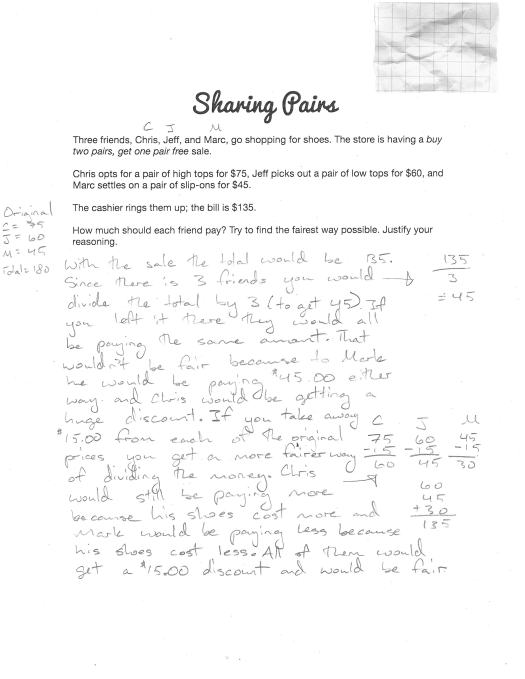 Sharing Pairs
C J M
Three friends, Chris, Jeff, and Marc, go shopping for shoes. The store is having a buy
two pairs, get one pair free sale.
Chris opts for a pair of high tops for $75, Jeff picks out a pair of low tops for $60, and
Marc settles on a pair of slip-ons for $45.
The cashier rings them up; the bill is $135.
How much should each friend pay? Try to find the fairest way possible. Justify your
reasoning.
Original
C = $75
J = 60
M = 45
Total = 180
With the sale the total would be 135.
Since there is 3 friends you would
divide the total by 3 (to get 45). If
you left it there they would all
be paying the same amount. That
wouldn't be fair because to Mark
he would be paying $45.00 either
way and Chris would be getting a
huge discount. If you take away
$15.00 from each of the original
prices you get a more fairer way
of dividing the money. Chris
would still be paying more
because his shoes cost more and
Mark would be paying less because
his shoes cost less. All of them would
get a $15.00 discount and would be fair
135
3
= 45
C J M
75 60 45
-15 -15 -15
60 45 30
60
45
+30
135